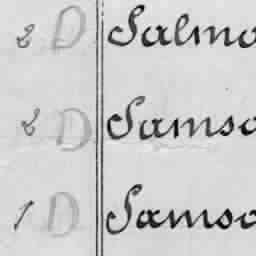 2 D Salmo
2 D Samso
1 D Samso